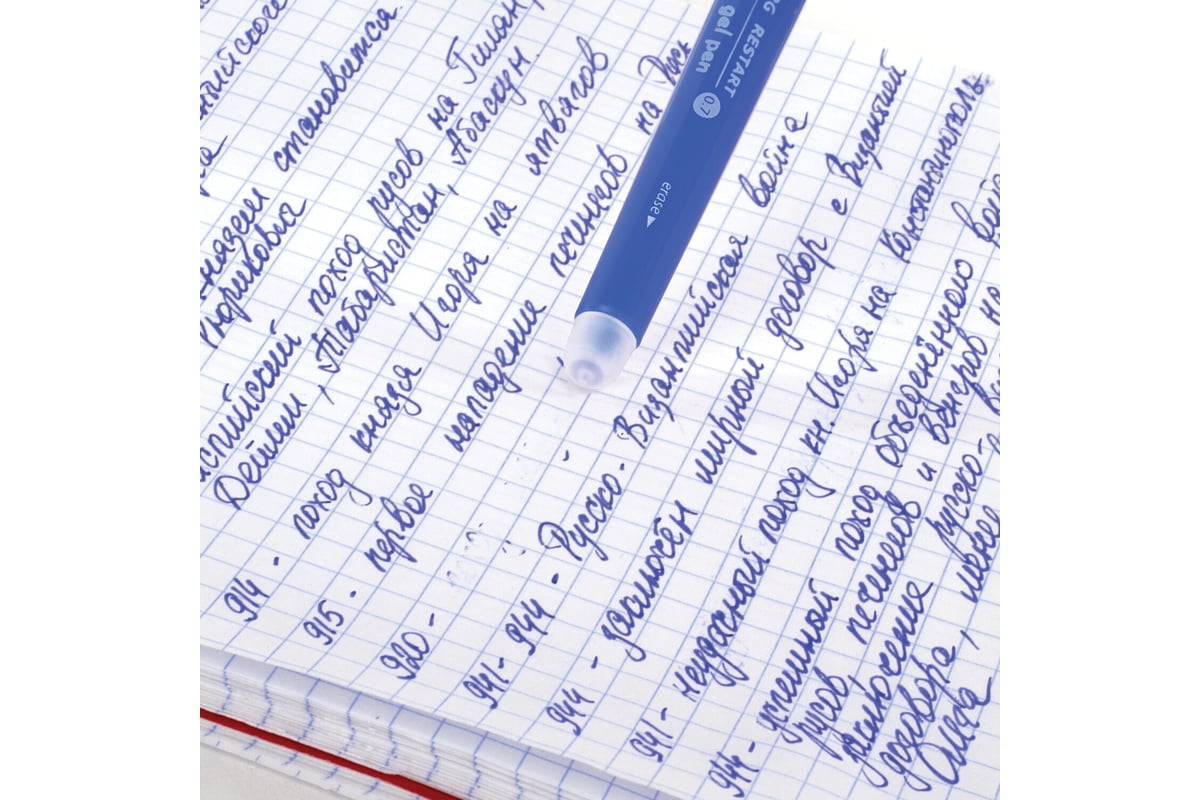 нязем становится
Рюриковна
поход русов на Гилян,
Дейлем, Табаристан, Абаскун.
914 - поход князя Игоря на ятвягов
915 - первое нападение печенегов на Русь
920 -
941 - 944 - Русско - Византийская война
944 - заключён мирный договор с Византией
941 - неудачный поход кн. Игоря на Константинополь.
944 - успешный поход объединённого
русов, печенегов и венгров на
заключение русско-
договора, менее
Олега
RESTART
gel pen
0.7
erase